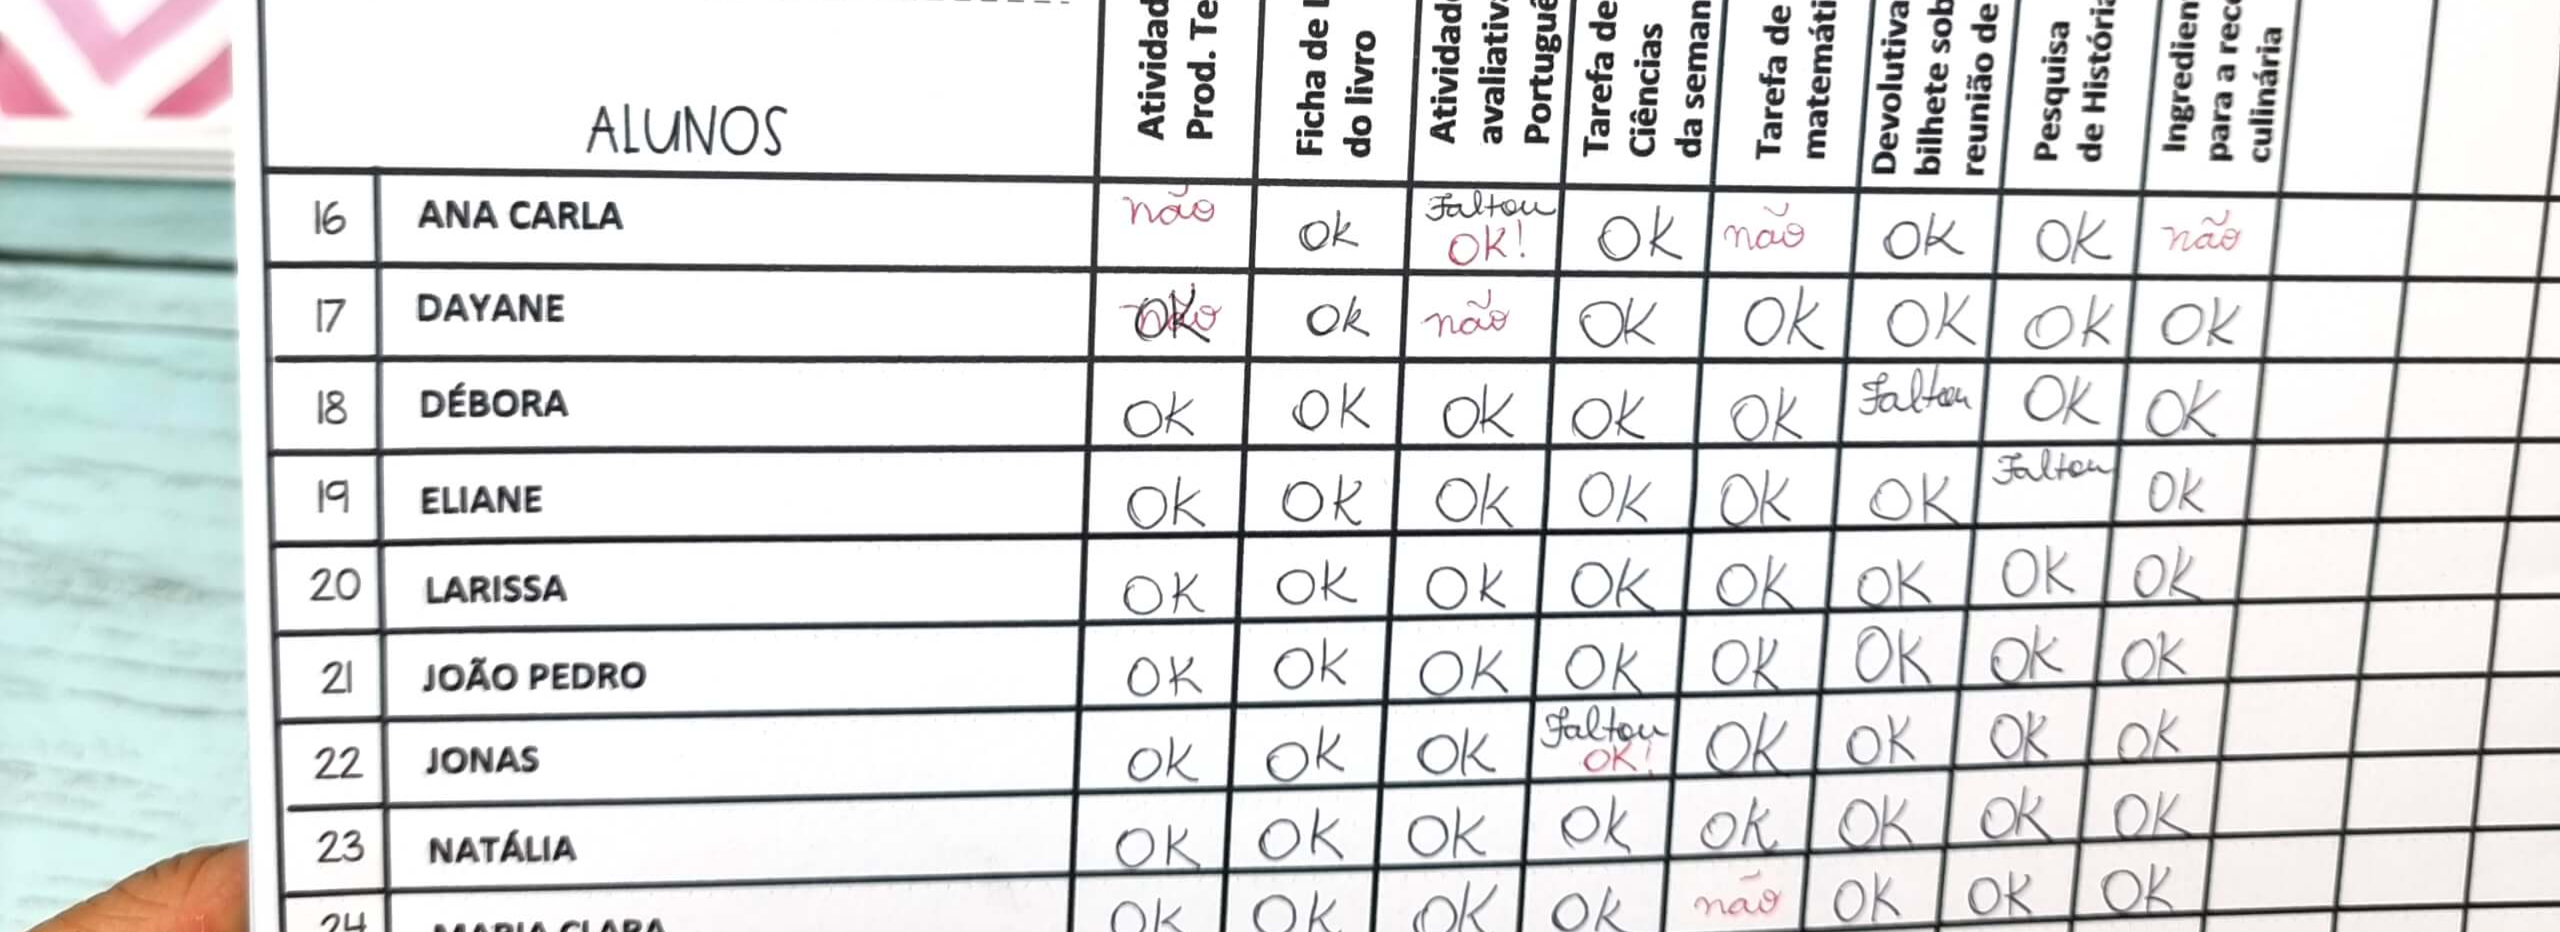 ALUNOS
Atividad
Prod. Te
Ficha de
do livro
Atividad
avaliativ
Portugu
Tarefa de
Ciências
da seman
Tarefa de
matemáti
Devolutiva
bilhete sob
reunião de
Pesquisa
de História
Ingredien
para a rece
culinária
16 ANA CARLA não ok Faltou OK! OK não OK OK não
17 DAYANE OK ok não OK OK OK OK OK
18 DÉBORA OK OK OK OK OK Faltou OK OK
19 ELIANE OK OK OK OK OK OK Faltou OK
20 LARISSA OK OK OK OK OK OK OK OK
21 JOÃO PEDRO OK OK OK OK OK OK OK OK
22 JONAS OK OK OK Faltou OK! OK OK OK OK
23 NATÁLIA OK OK OK OK OK OK OK OK
24 MARIA CLARA OK OK OK OK não OK OK OK